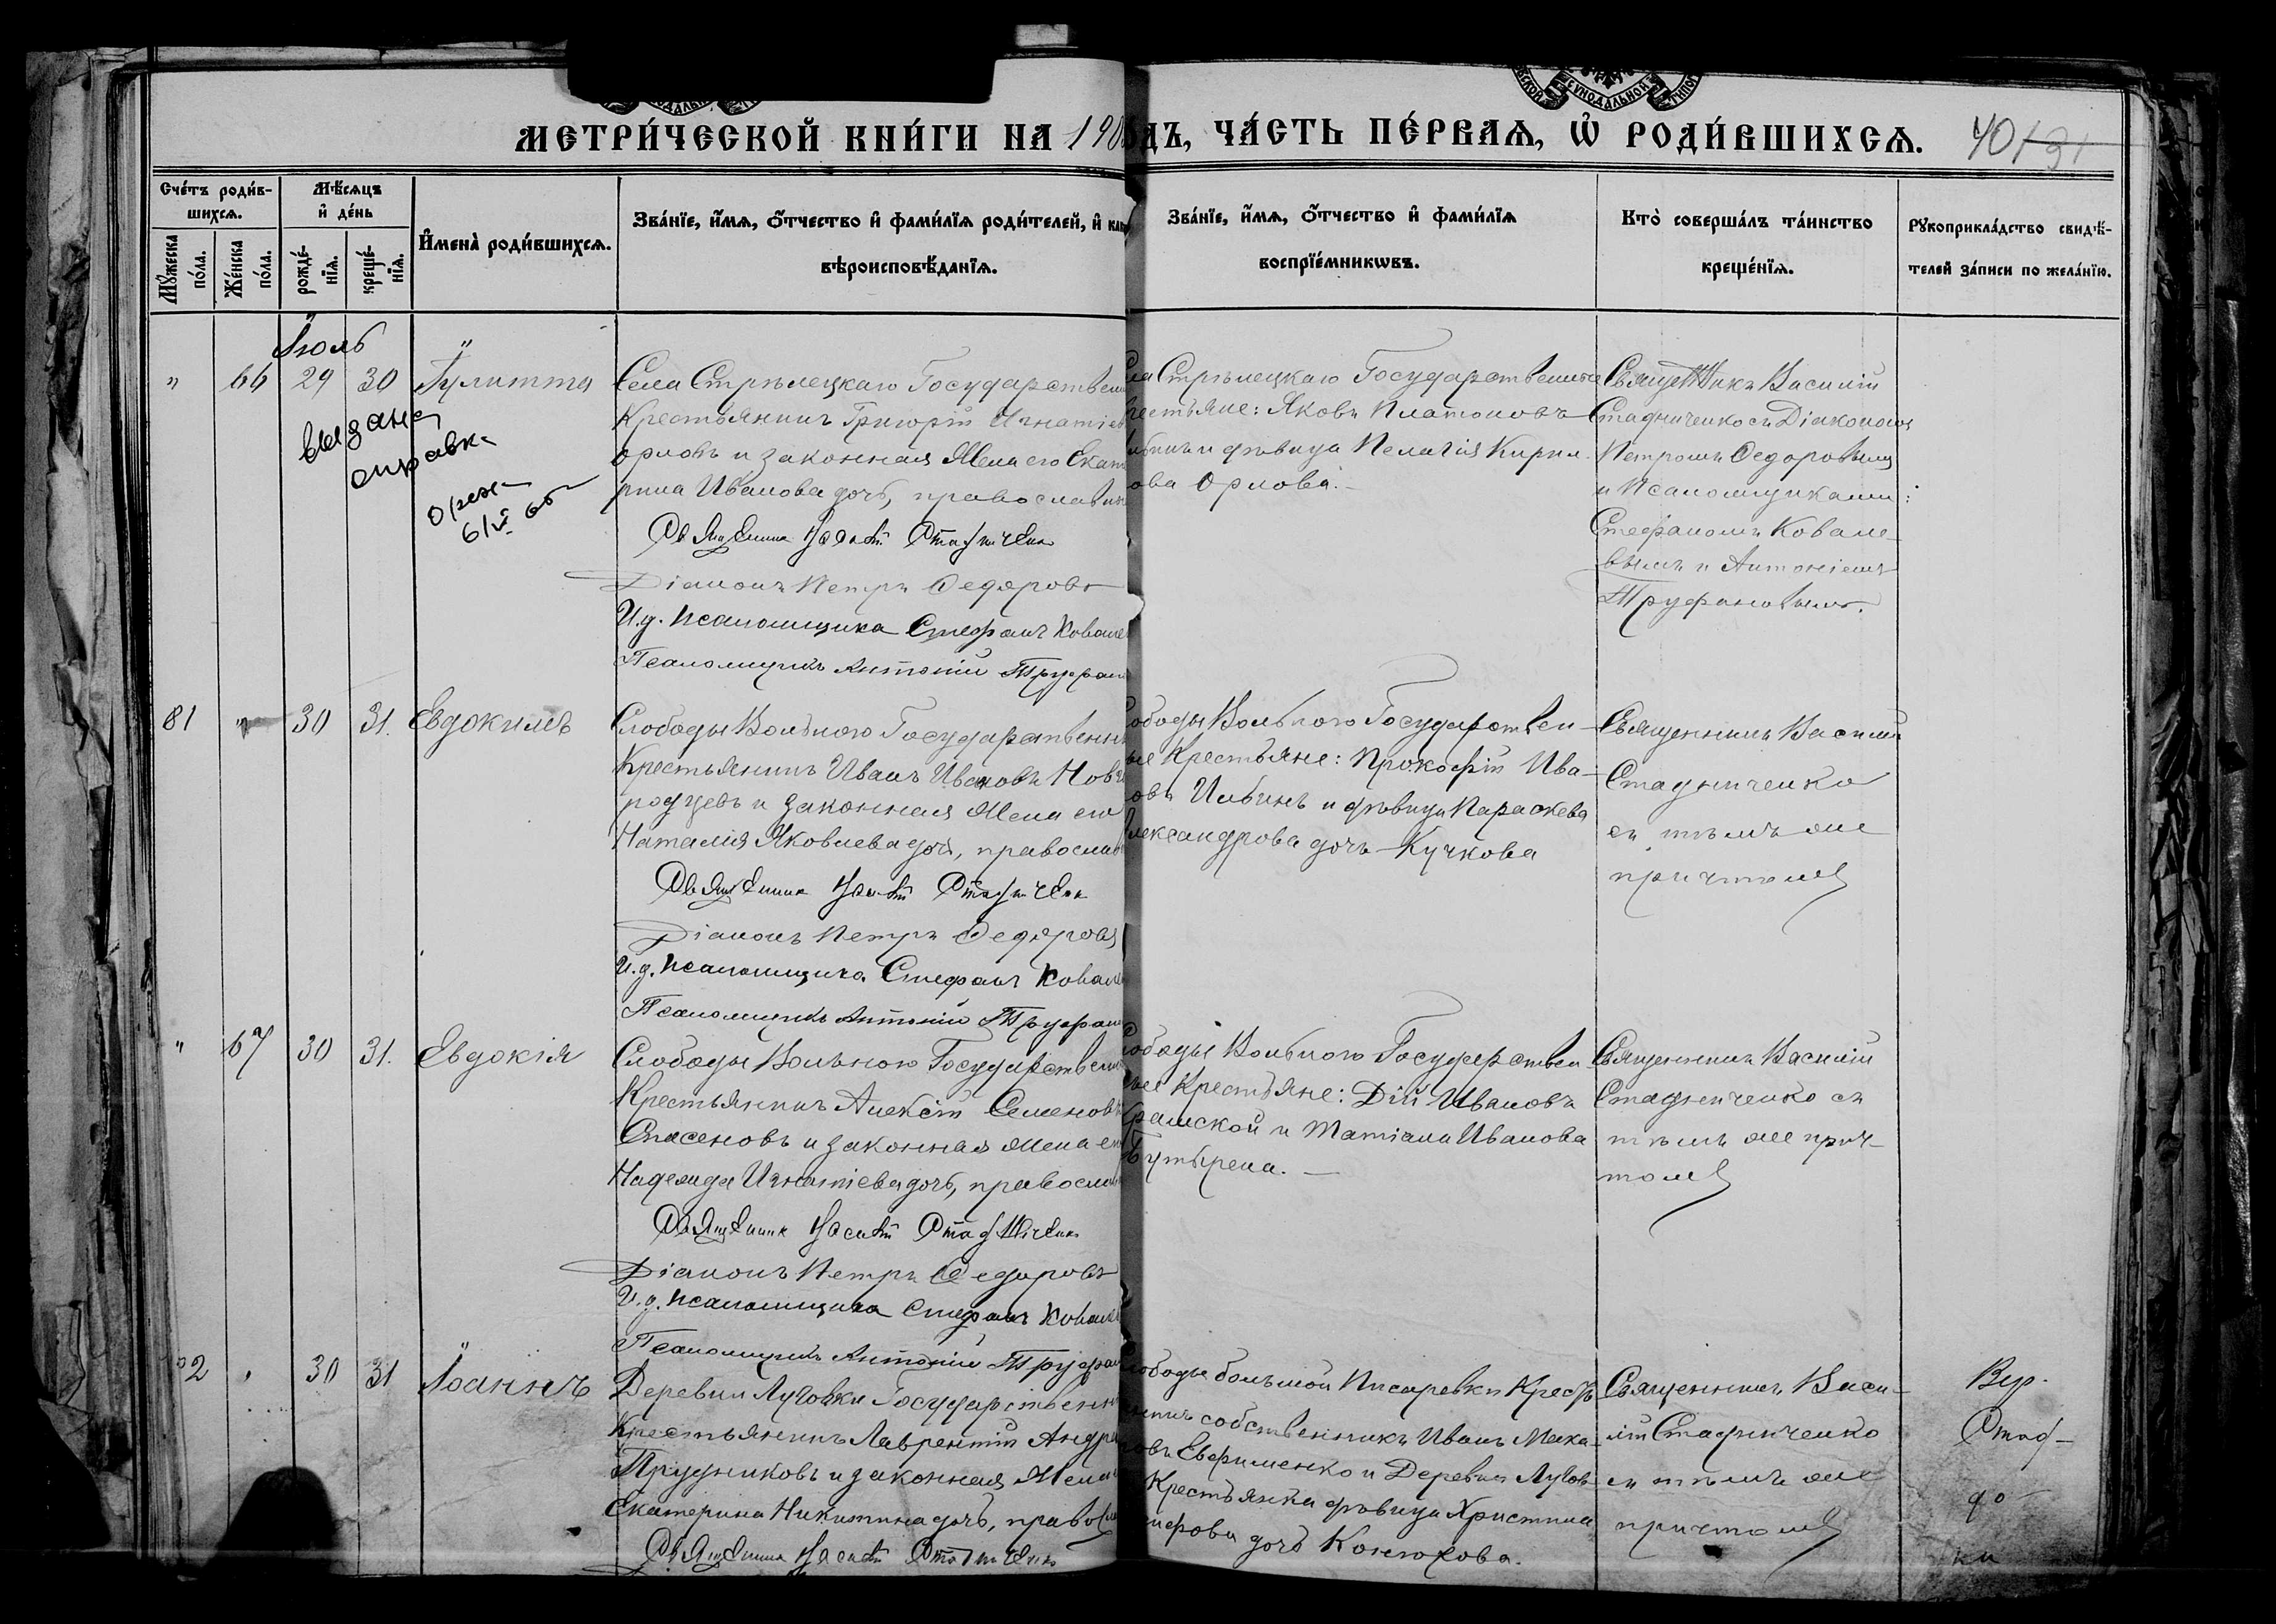 МЕТРИ́ЧЕСКОЙ КНИ́ГИ НА 190 ДЪ, ЧА́СТЬ ПЕ́РВАЯ, Ѡ РОДИ́ВШИХСЯ. 40
Сче́тъ роди́в-
шихся.
Мꙋ́жеска по́ла.
Же́нска по́ла.
Мѣ́сяцъ
и де́нь
рожде́-
нїя.
креще́-
нїя.
И҆мена̀ роди́вшихся.
Зва́нїе, и҆́мя, ѻ҆́тчество и҆ фами́лїя роди́телей, и҆ как
вѣроисповѣ́данїя.
Зва́нїе, и҆́мя, ѻ҆́тчество и҆ фами́лїя
воспрїе́мникѡвъ.
Кто̀ соверша́лъ та́инство
креще́нїя.
Рꙋкоприкла́дство свидѣ́-
телей за́писи по жела́нїю.
Іюль
" 66 29 30 Іулитта
выдана
справка
Села Стрѣлецкаго Государствен
Крестьянинъ Григорій Игнатіев
Орловъ и законная жена его Екате
рина Иванова дочь, православн
Священникъ Василій Стадниченко
Діаконъ Петръ Ѳедоровъ
И.д. псаломщика Стефанъ Ковале
Псаломщикъ Антоній Труфан
ла Стрѣлецкаго Государственные
рестьяне: Яковъ Платоновъ
и дѣвица Пелагія Кирил
ова Орлова.
Священникъ Василій
Стадниченко съ Діакономъ
Петромъ Ѳедоровымъ
и Псаломщиками:
Стефаномъ Ковале-
вымъ и Антоніемъ
Труфановымъ.
81 " 30 31. Евдокимъ
Слободы Вольного Государственн
Крестьянинъ Иванъ Ивановъ Новг
родцевъ и законная жена его
Наталія Яковлева дочь, православ
Священникъ Василій Стадниченко
Діаконъ Петръ Ѳедоровъ
И.д. псаломщика Стефанъ Ковале
Псаломщикъ Антоній Труфан
лободы Вольного Государствен-
ые Крестьяне: Прокофій Ива-
овъ Ильинъ и дѣвица Параскева
лександрова дочь Кучкова
Священникъ Василій
Стадниченко
съ тѣмъ же
причтомъ
" 67 30 31. Евдокія
Слободы Вольного Государствен
Крестьянинъ Алексій Семеновъ
Спасеновъ и законная жена ег
Надежда Игнатіева дочь, правосла
Священникъ Василій Стадниченко
Діаконъ Петръ Ѳедоровъ
И.д. псаломщика Стефанъ Ковале
Псаломщикъ Антоній Труфан
лободы Вольного Государствен
ые Крестьяне: Дій Ивановъ
рамской и Татіана Иванова
Бутырена.
Священникъ Василій
Стадниченко съ
тѣмъ же прич-
томъ
2 30 31 Іоаннъ
Деревни Луговки Государственн
Крестьянинъ Лаврентій Андре
Прудниковъ и законная жена
Екатерина Никитина дочь, правосла
Священникъ Василій Стадниченко
лободы большой Писаревки Кресть
янинъ собственникъ Иванъ Мака-
ровъ Евфименко и Деревни Лугов
Крестьянка дѣвица Христина
дочь Конюхова.
Священникъ Васи-
лій Стадниченко
съ тѣмъ же
причтомъ